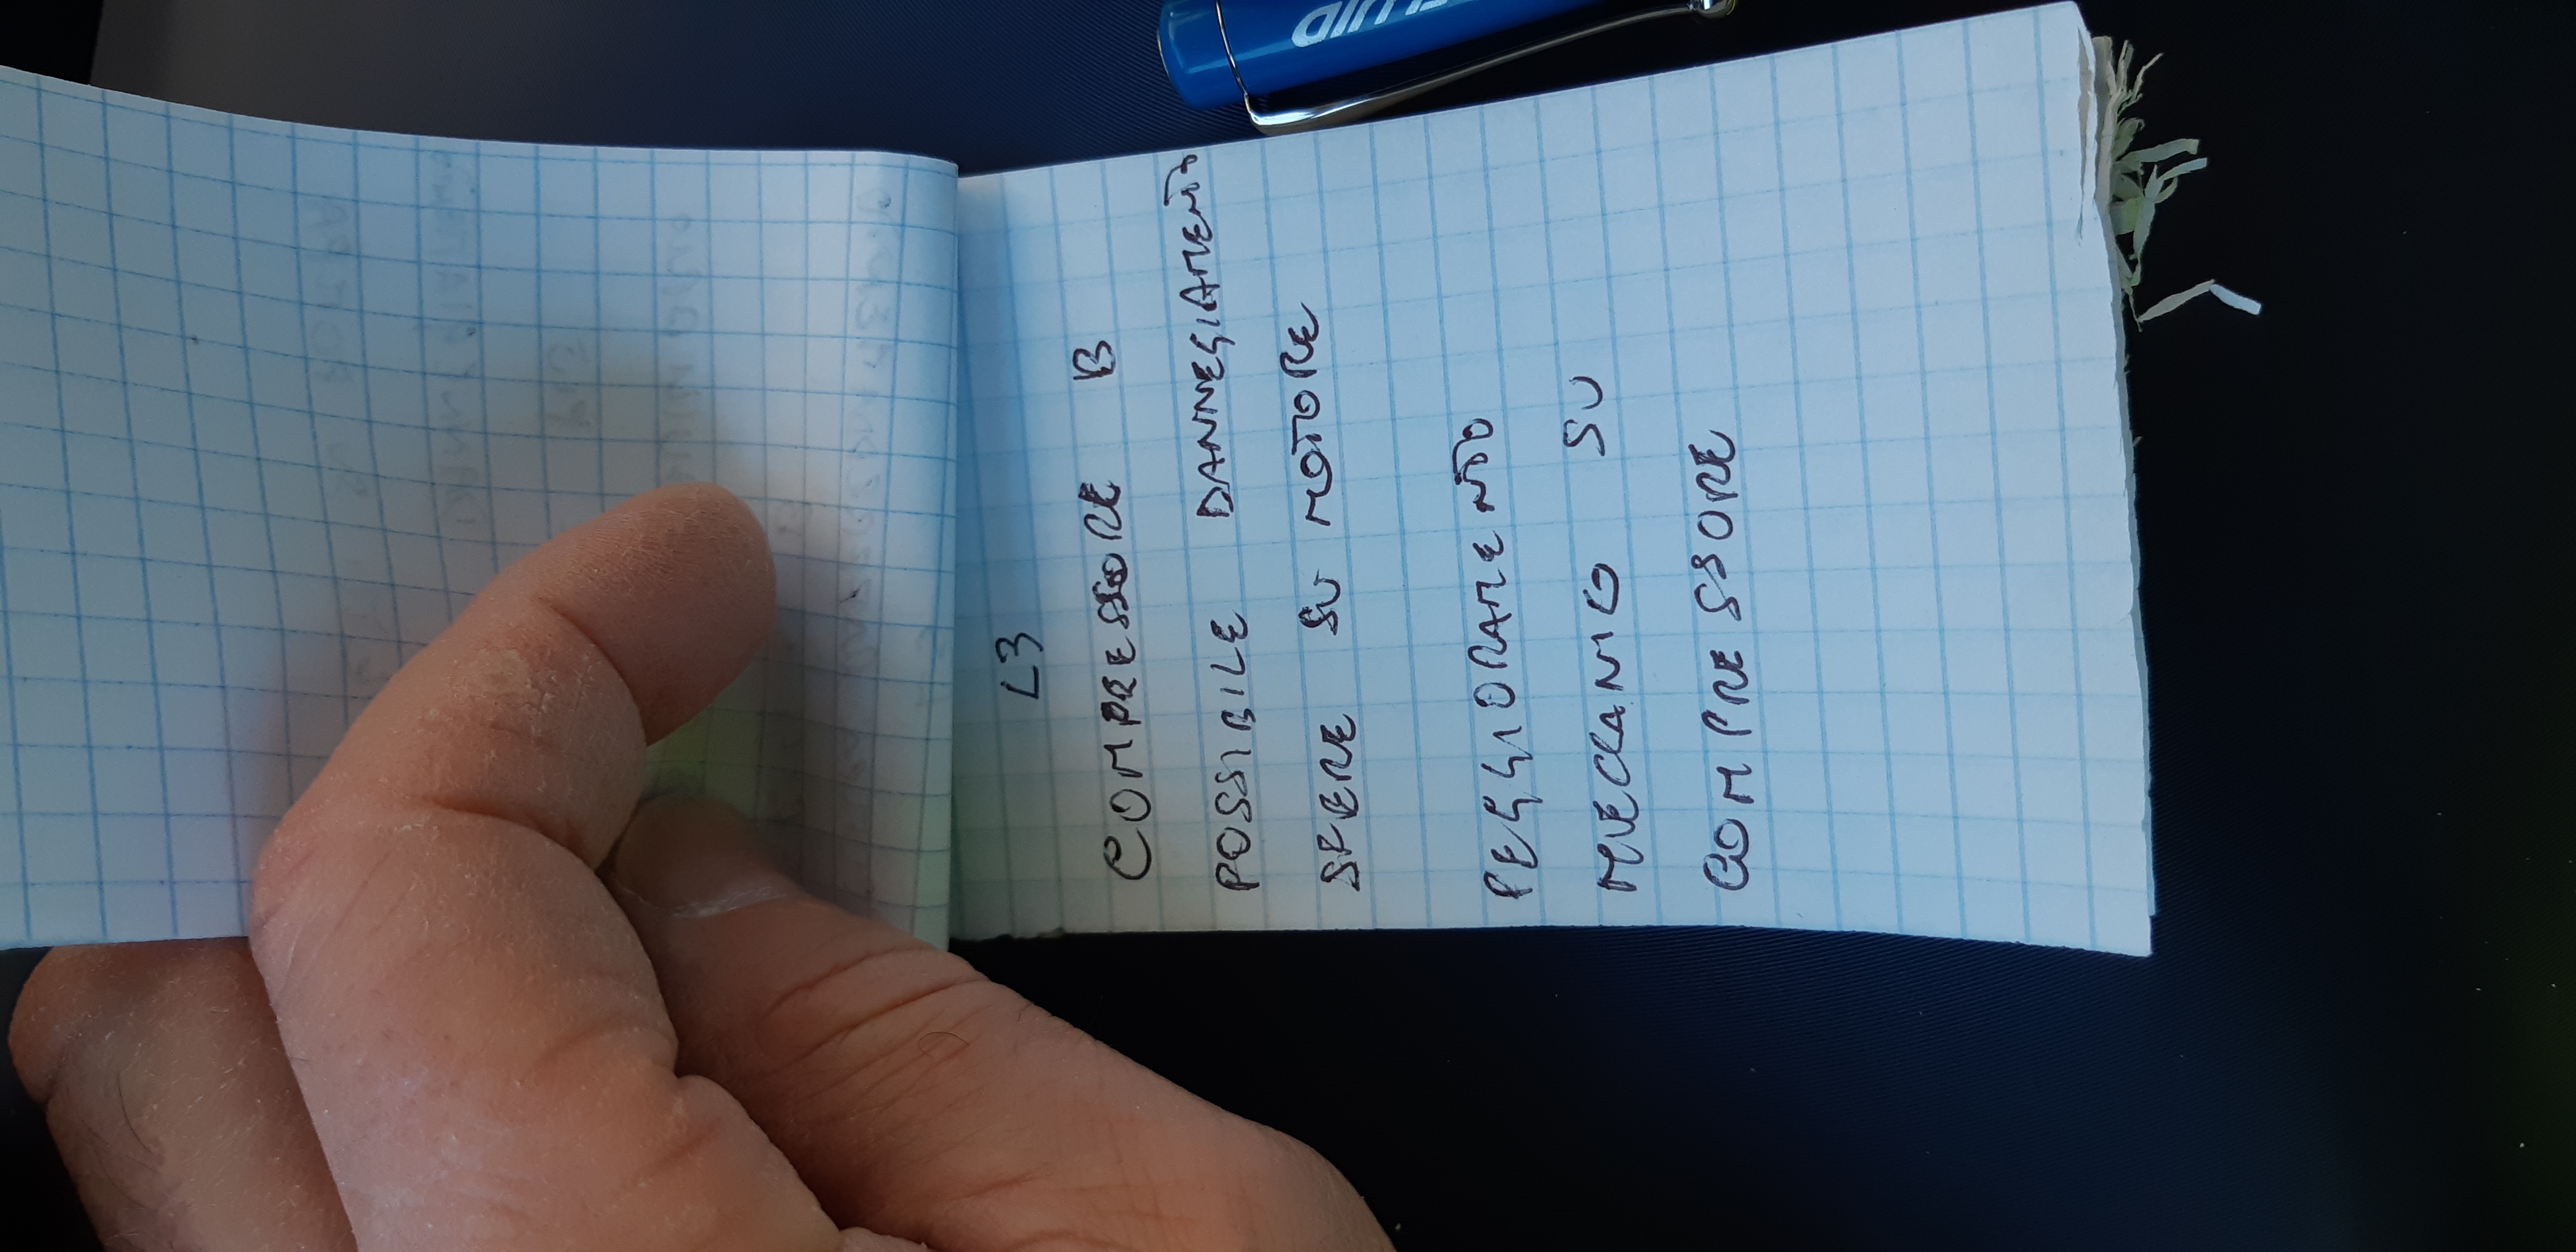 L3
COMPRESSORE B
POSSIBILE DANNEGIAMENTO
SFERE SU MOTORE
PEGGIORAMENTO
MECCANICO SU
COMPRESSORE